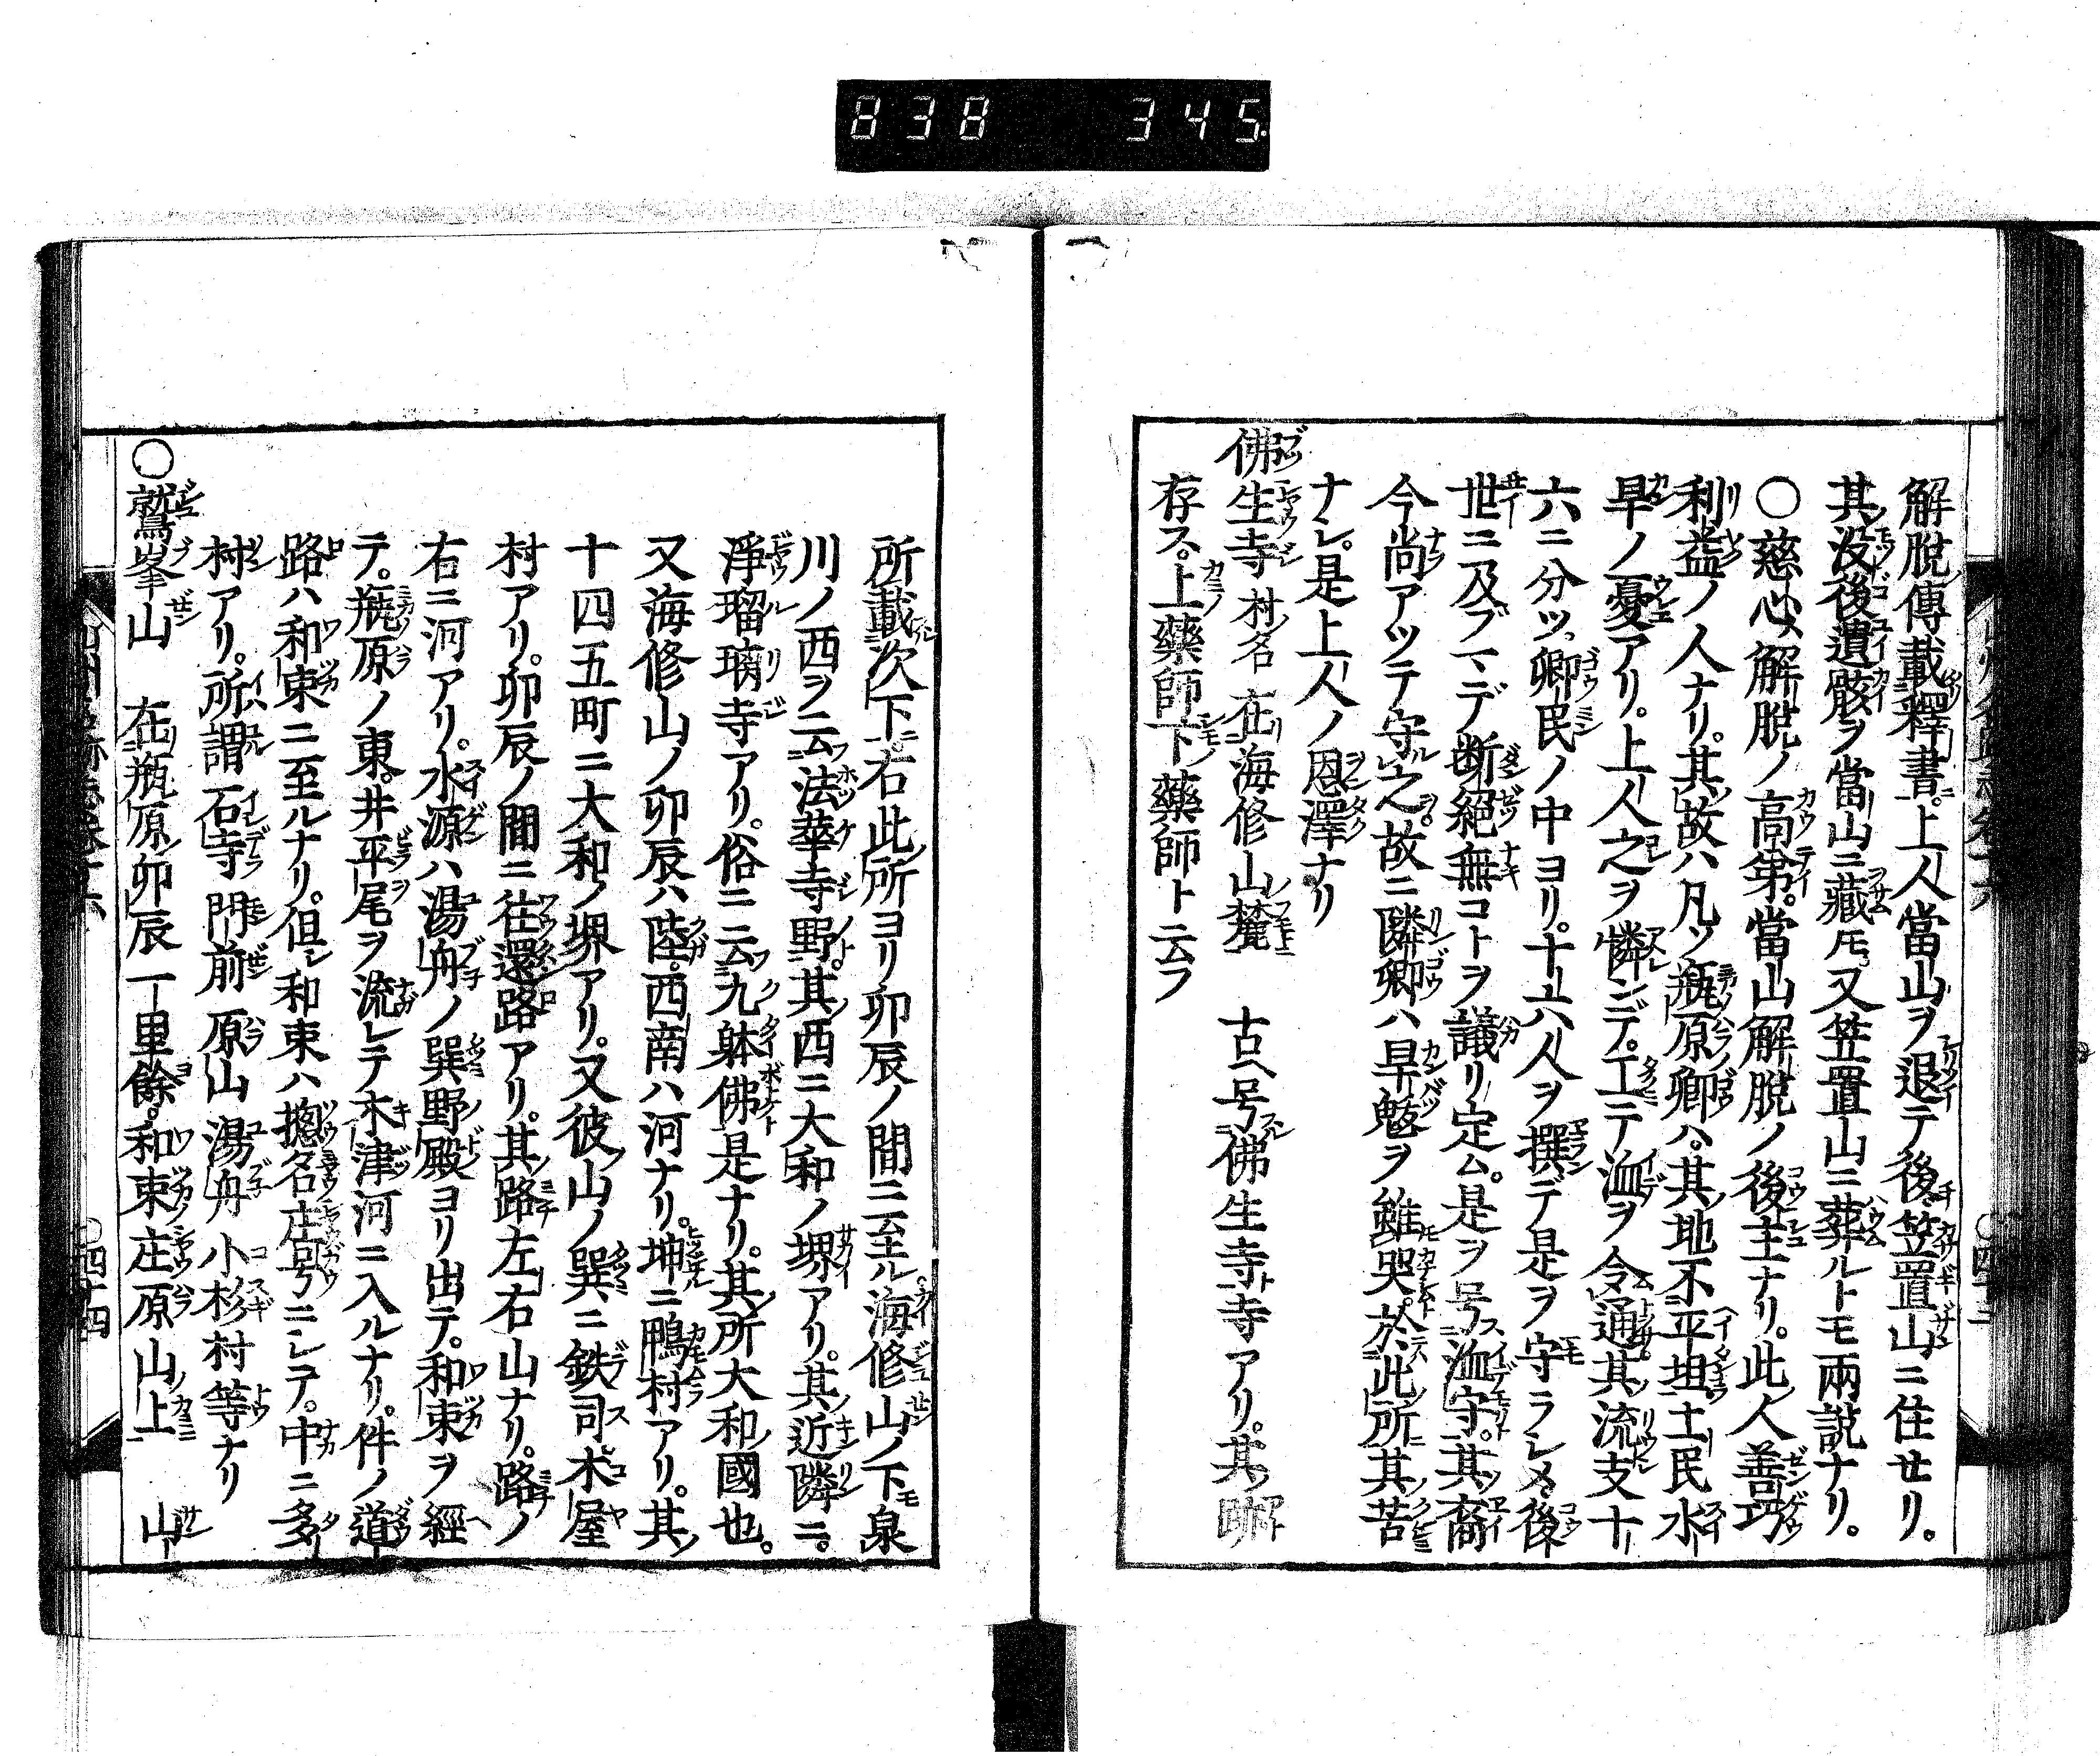 838 345
解脱傳載釋書上人當山ヲ退テ後笠置山ニ住セリ。
其没後遺骸ヲ當山ニ藏ム。又笠置山ニ葬ルトモ兩説ナリ。
○慈心ハ解脱ノ高弟。當山解脱ノ後主ナリ。此人善巧
利益ノ人ナリ。其故ハ凡ソ瓶原郷ハ。其地不平坦土民水
旱ノ憂アリ。上人之ヲ憐ンデ。工テ洫ヲ令通其流支十
六ニ分ツ。郷民ノ中ヨリ。十六人ヲ撰デ是ヲ守ラシメ後
世ニ及ブマデ断絕無コトヲ議リ定ム。是ヲ号洫守。其裔
今尚アツテ守之。故ニ隣郷ハ旱魃ヲ雖哭。於此所其苦
ナシ。是上人ノ恩澤ナリ
佛生寺 村名 在海修山麓 古ヘ号佛生寺寺アリ。其跡
存ス。上藥師下藥師ト云フ
所載次下右此所ヨリ卯辰ノ間ニ至ル。海修山ノ下泉
川ノ西ヲ云法華寺野。其西ニ大和ノ堺アリ。其近隣ニ。
淨瑠璃寺アリ。俗ニ云九躰佛是ナリ。其所大和國也。
又海修山ノ卯辰ハ陸。西南ハ河ナリ。坤ニ鴨村アリ。其
十四五町ニ大和ノ堺アリ。又彼山ノ巽ニ鉄司木屋
村アリ。卯辰ノ間ニ往還路アリ。其路左右山ナリ。路ノ
右ニ河アリ。水源ハ湯舟ノ巽野殿ヨリ出テ。和束ヲ經
テ。瓶原ノ東。井平尾ヲ流レテ木津河ニ入ルナリ。件ノ道
路ハ和束ニ至ルナリ。但シ和束ハ摠名庄号ニシテ。中ニ多
村アリ。所謂石寺門前原山湯舟小杉村等ナリ
○鷲峯山 在瓶原卯辰一里餘。和束庄原山上 山